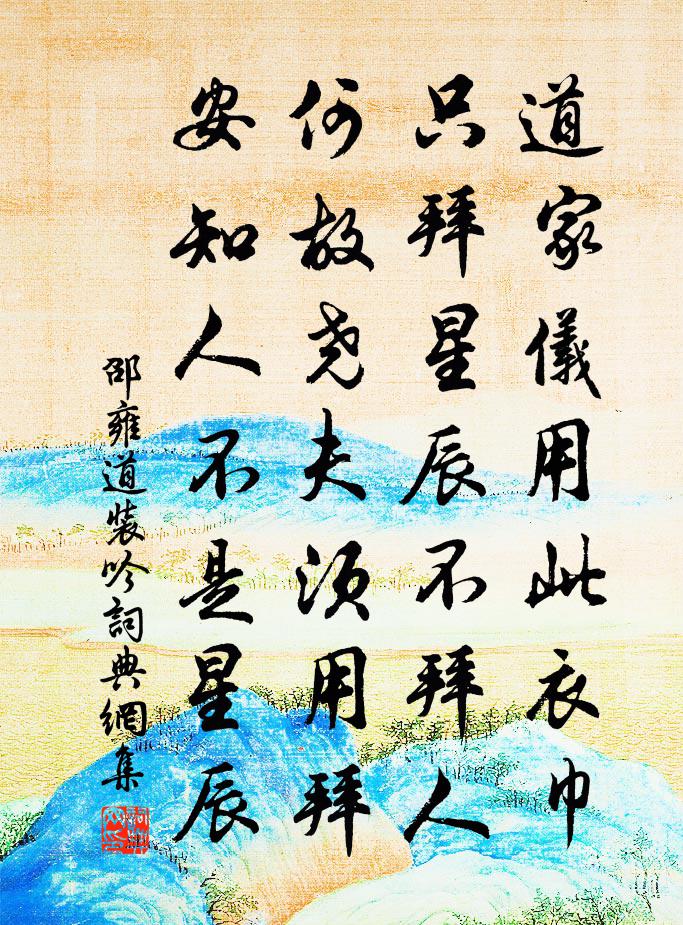 道家儀用此衣巾
只拜星辰不拜人
何故尧夫須用拜
安知人不是星辰
邵雍道裝吟詞典網集